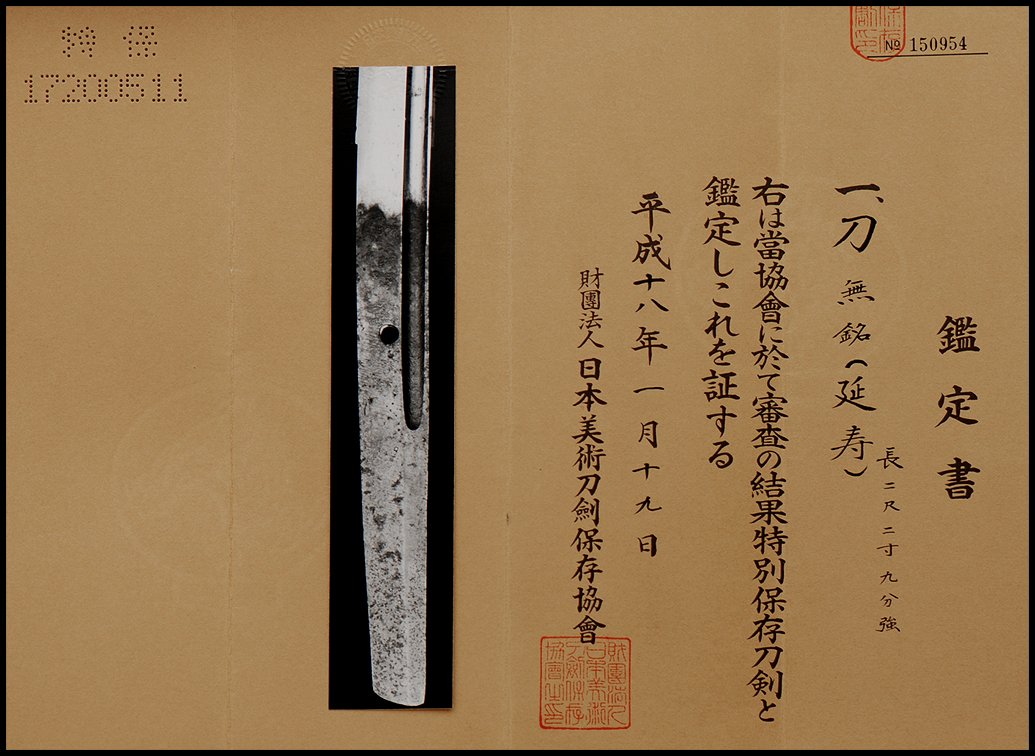 鑑定書
一、刀 無銘(延寿)
長二尺二寸九分強
右は當協會に於て審査の結果特別保存刀剣と
鑑定しこれを証する
平成十八年一月十九日
財團法人日本美術刀劍保存協會
財團法人
日本美術
刀劍保存
協會之印
№ 150954
特保
17200511